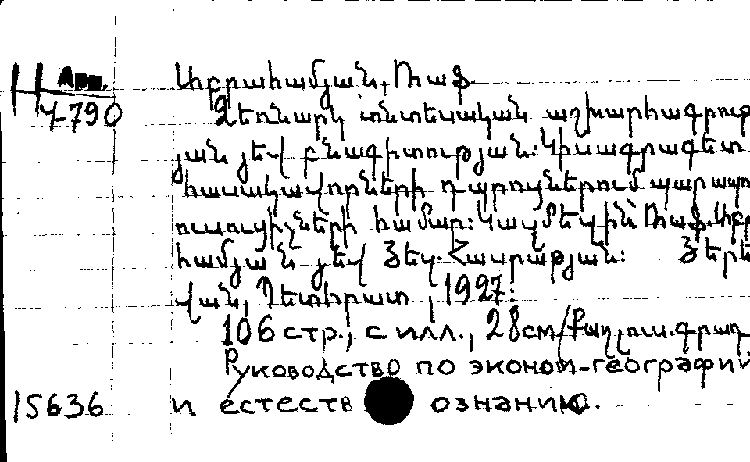 Арм.
4-790
Աբրահամյան, Ռաֆ.
Ձեռնարկ տնտեսական աշխարհագրութ
յան յեվ բնագիտության: Կիսագրագետ
հասակավորների դպրոցներում պարապող
ուսուցիչների համար: Կազմեցին՝ Ռաֆ. Աբր
համյան յեվ Յեղ. Հայրապյան: Յերե
վան, Պետհրատ, 1927:
106 стр., с илл., 28см/Քաղլուս. գրադ
Руководство по эконом-географии
15636 и естеств ознанию.